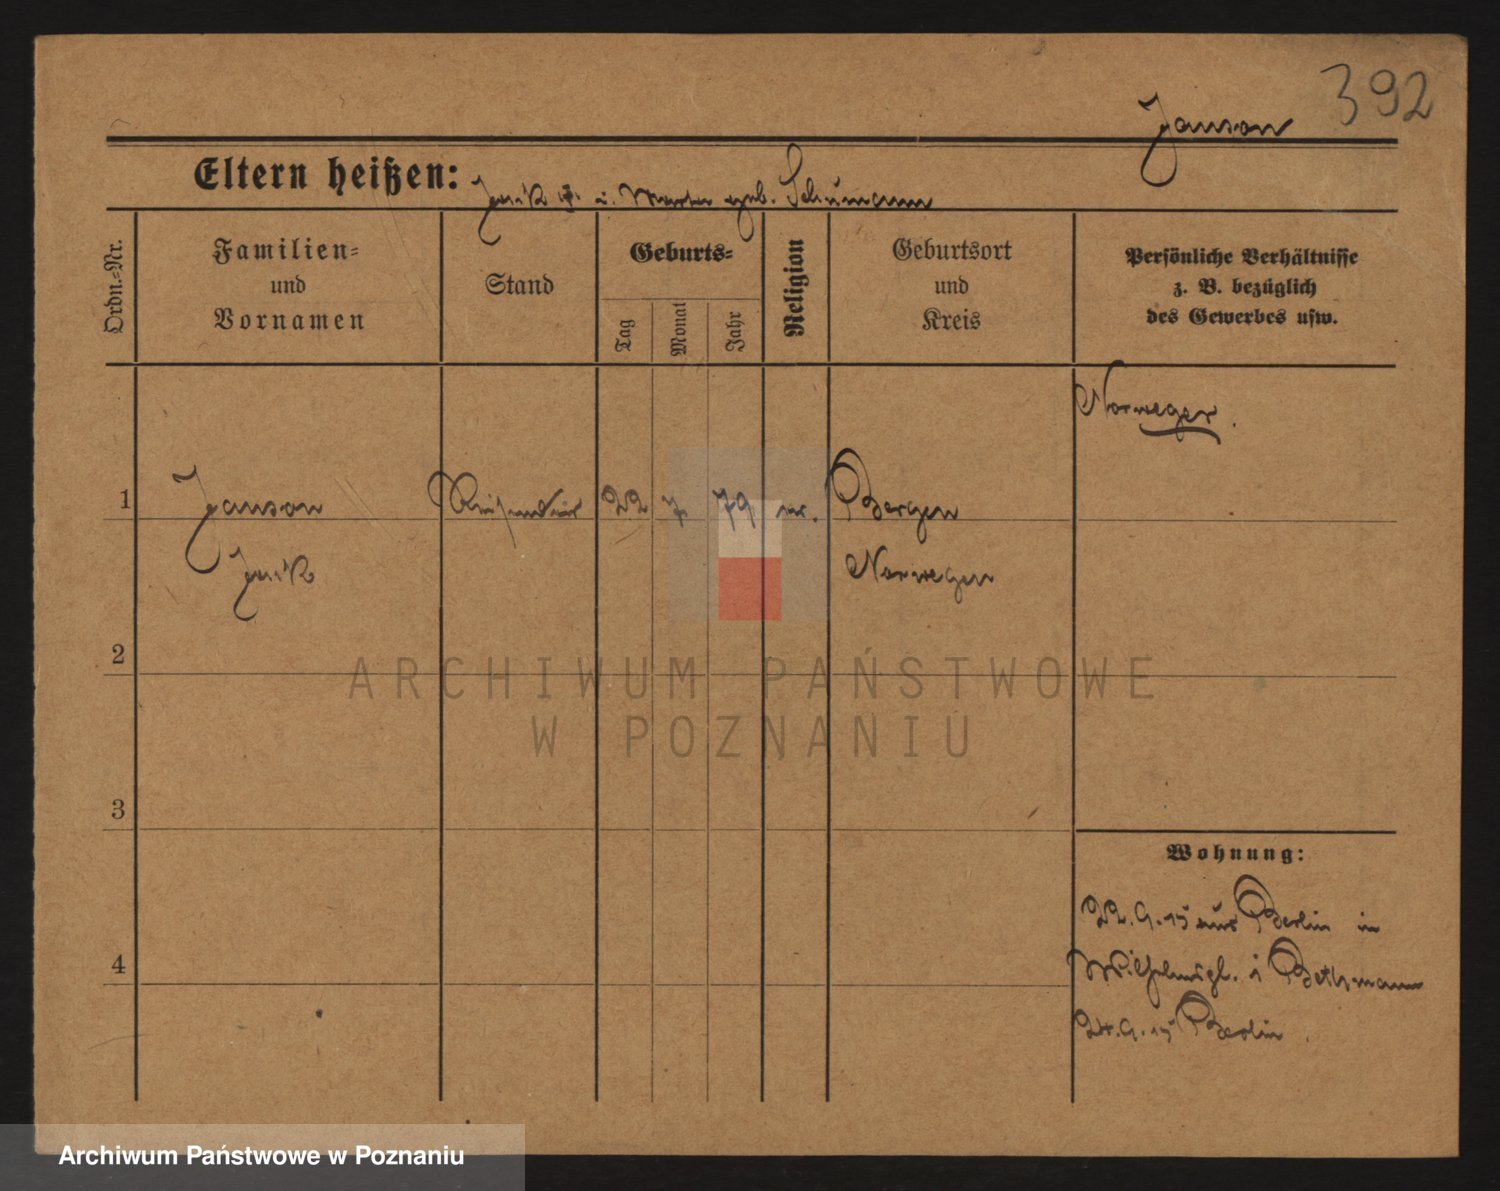 392
Janson
Eltern heißen:
u. geb. Schumann
Ordn.-Nr.
Familien-
und
Vornamen
Stand
Geburts-
Tag
Monat
Jahr
Religion
Geburtsort
und
Kreis
Persönliche Verhältnisse
z. B. bezüglich
des Gewerbes usw.
Norweger.
1
Janson
22
7
79
Bergen
Norwegen
2
ARCHIWUM PAŃSTWOWE
W POZNANIU
3
Wohnung:
22.9.15 aus Berlin in
4
Bethmann
24.9.15 Berlin
Archiwum Państwowe w Poznaniu